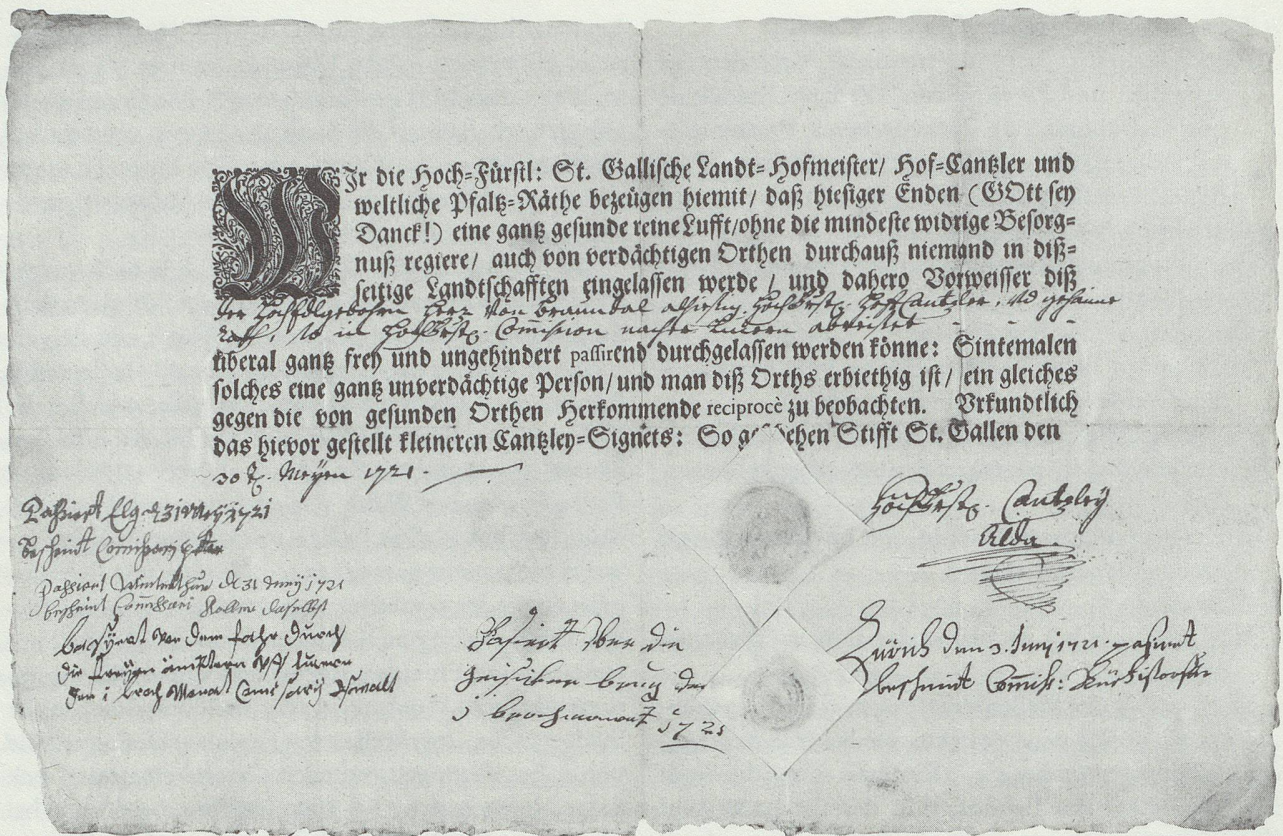 WIr die Hoch-Fürstl: St. Gallische Landt-Hofmeister/ Hof-Cantzler und
weltliche Pfaltz-Räthe bezeügen hiemit/ daß hiesiger Enden (GOtt sey
Danck!) eine gantz gesunde reine Lufft/ohne die mindeste widrige Besorg-
nuß regiere/ auch von verdächtigen Orthen durchauß niemand in diß-
seitige Landtschafften eingelassen werde/ und dahero Vorweisser diß
der Hochedlgebohrn Herr von Hochfürstl. Hoff Cantzler,
Rath, so in Hochfürstl. Comission nacher Lucern abreiset
überal gantz frey und ungehindert passirend durchgelassen werden könne: Sintemalen
solches eine gantz unverdächtige Person/und man diß Orths erbiethig ist/ ein gleiches
gegen die von gesunden Orthen Herkommende reciprocè zu beobachten. Vrkundtlich
das hievor gestellt kleineren Cantzley-Signets: So geschehen Stifft St. Gallen den
30 t. Meyen 1721.
Hochfürstl. Cantzley
Passiert Elgg d. 31 Mey 1721
bescheint
Passiert Winterthur d. 31 1721
bescheint Commissari daselbst
vor dem fahr durch
die freyen ämptern
den 1 brach Monat
Pasiert über die
brug den
brachmonat 1721
Zürich den 3. Junij 1721. pasiert
bescheint Comiss: